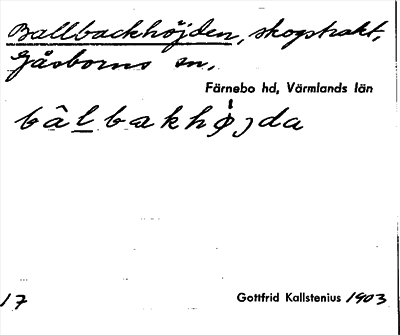 Ballbackhöjden, skogstrakt,
Gåsborns sn.
Färnebo hd, Värmlands län
bâlbakhøjda
17
Gottfrid Kallstenius 1903